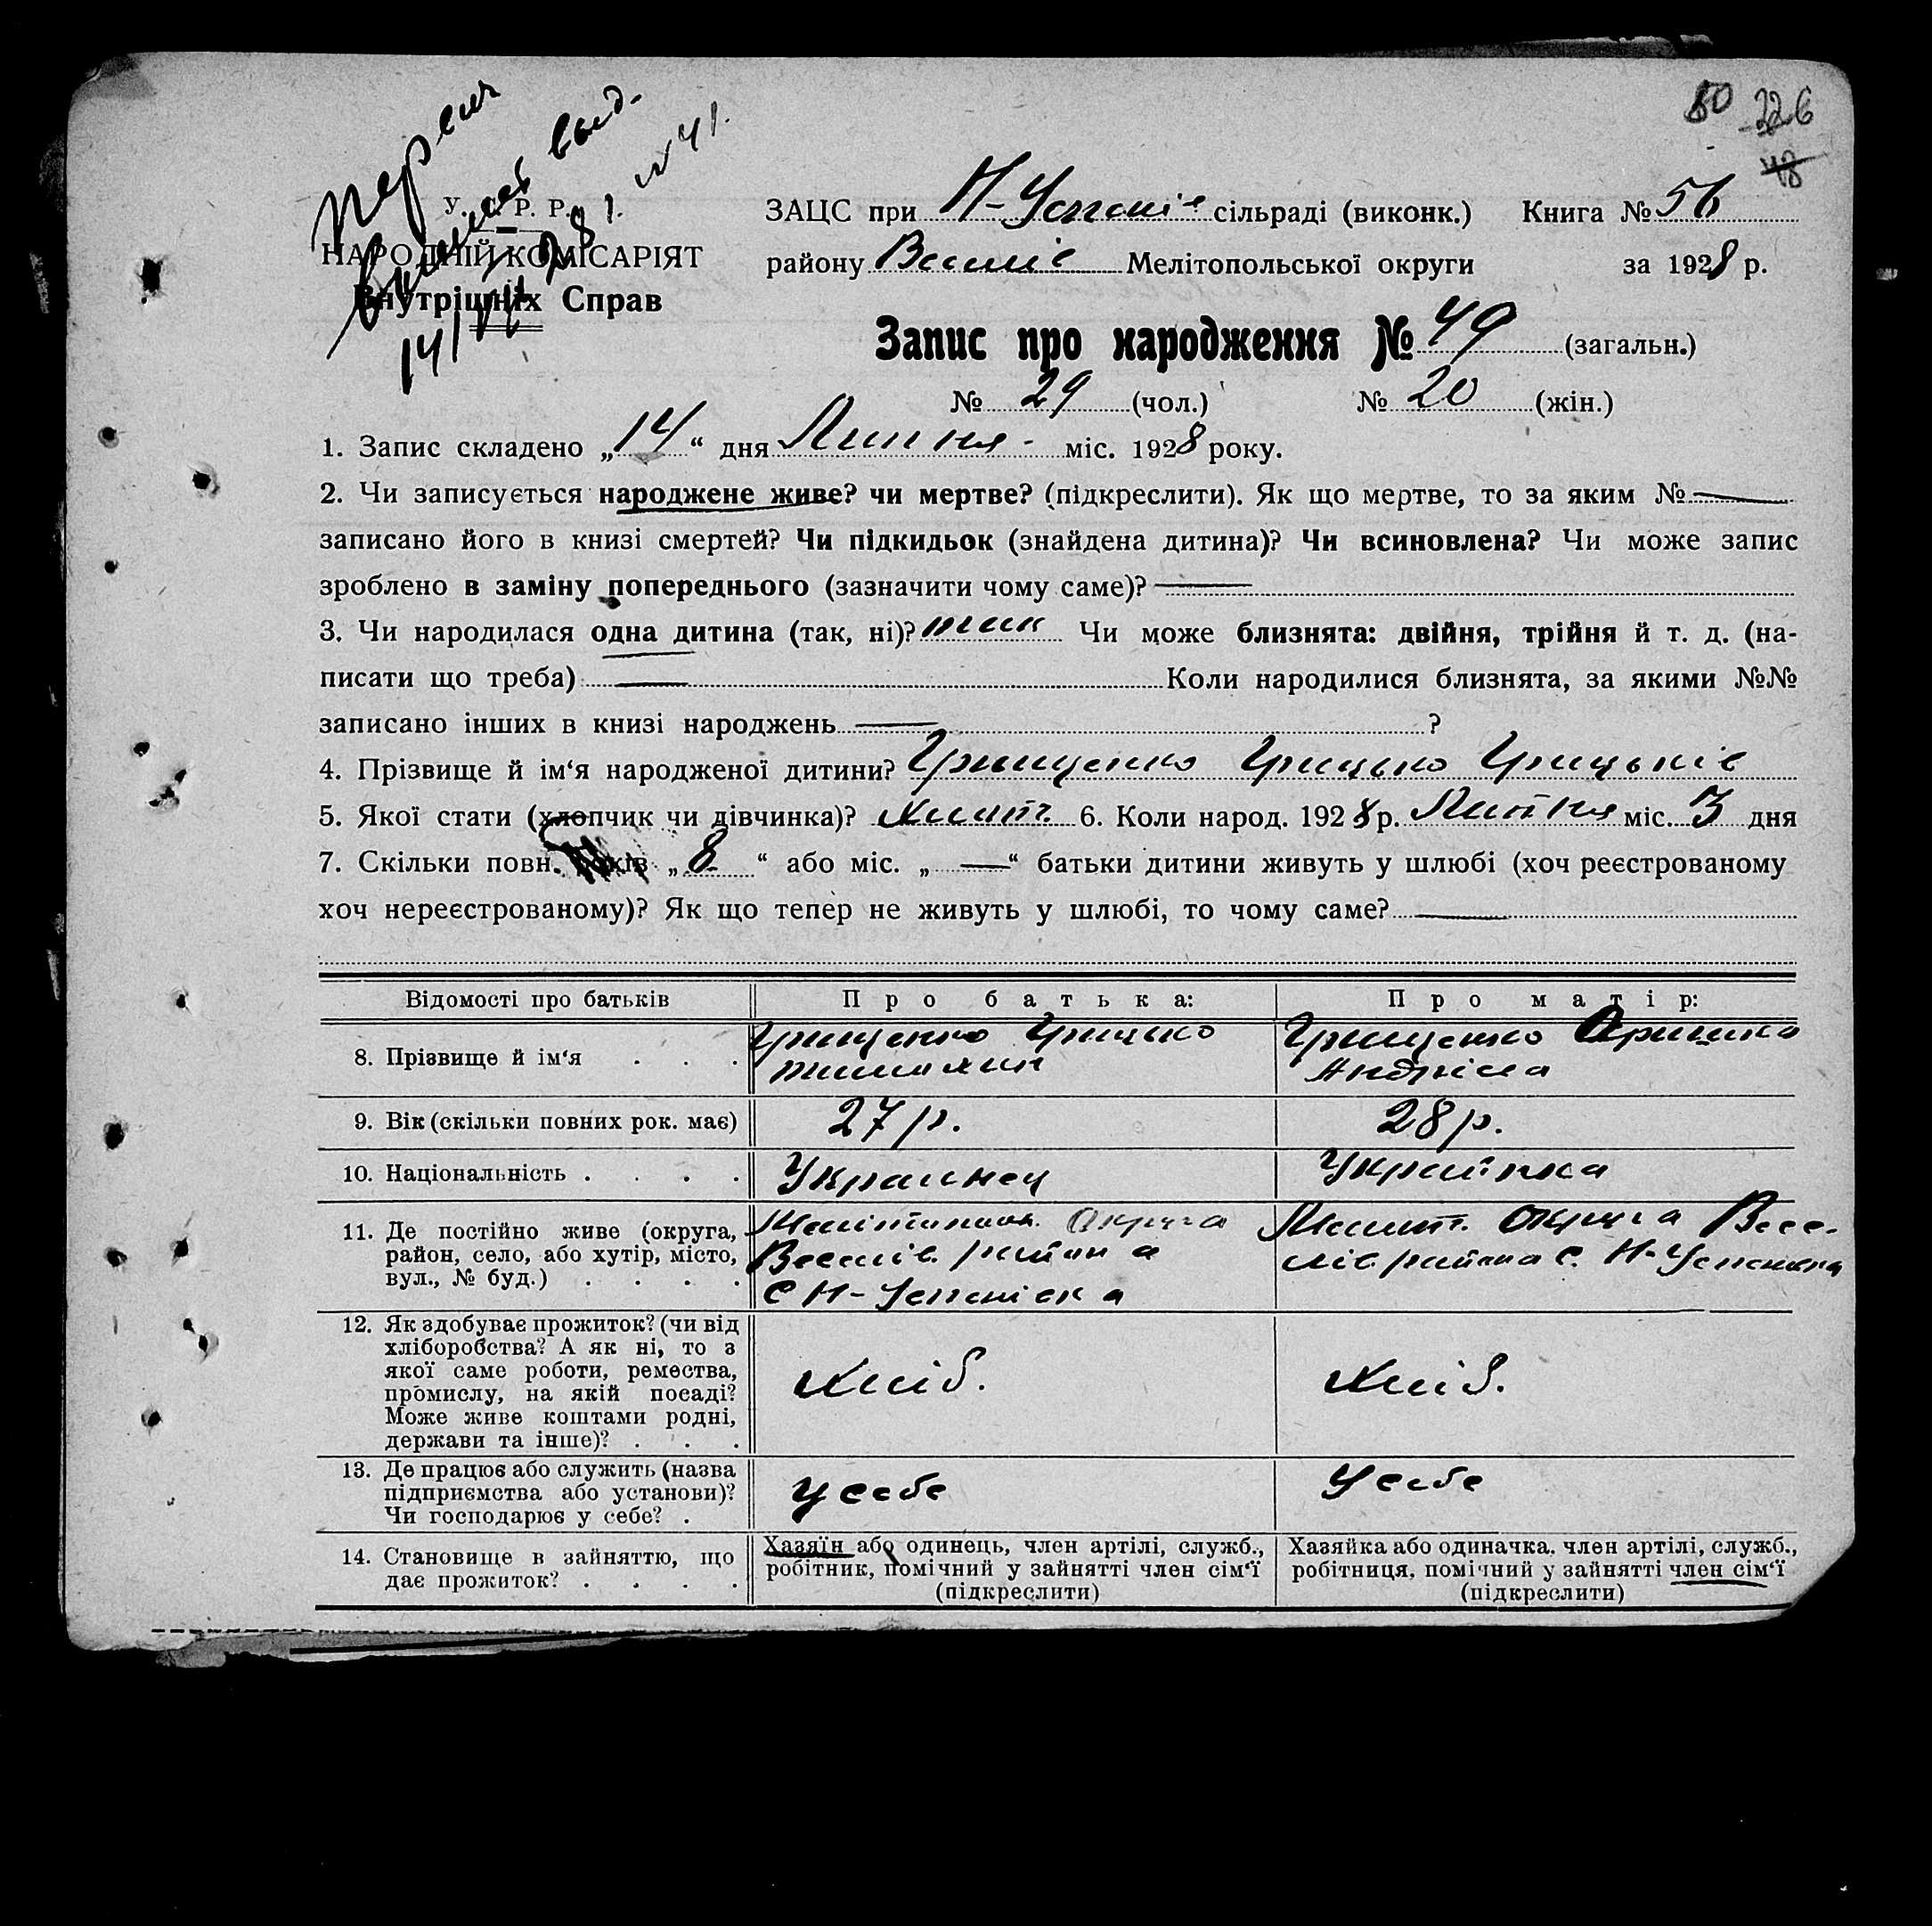 50 226
48
У. С. Р. Р.
НАРОДНІЙ КОМІСАРІЯТ
Внутрішніх Справ
№ 41.
ЗАЦС при Н-Успенів сільраді (виконк.) Книга № 56
району Веселів Мелітопольської округи за 1928 р.
Запис про народження № 49 (загальн.)
№ 29 (чол.) № 20 (жін.)
1. Запис складено „14“ дня Липня міс. 1928 року.
2. Чи записується народжене живе? чи мертве? (підкреслити). Як що мертве, то за яким № —
записано його в книзі смертей? Чи підкидьок (знайдена дитина)? Чи всиновлена? Чи може запис
зроблено в заміну попереднього (зазначити чому саме)? —
3. Чи народилася одна дитина (так, ні)? так Чи може близнята: двійня, трійня й т. д. (на-
писати що треба) — Коли народилися близнята, за якими №№
записано інших в книзі народжень — ?
4. Прізвище й ім‘я народженої дитини? Грищенко Грицько Грицьків
5. Якої стати (хлопчик чи дівчинка)? 6. Коли народ. 1928 р. Липня міс. 3 дня
7. Скільки повн. років „8“ або міс. „—“ батьки дитини живуть у шлюбі (хоч реєстрованому
хоч нереєстрованому)? Як що тепер не живуть у шлюбі, то чому саме? —
Відомості про батьків Про батька: Про матір:
8. Прізвище й ім‘я . . . Грищенко Грицько Грищенко Оришка
Андріева
9. Вік (скільки повних рок. має) 27 р. 28 р.
10. Національність . . . . Украинец Українка
11. Де постійно живе (округа, район, село, або хутір, місто, вул., № буд.) . . . .
Мелітопол. Округа
Веселів. района
С Н-Успенівка
Меліт. Округа Весе-
лів района С. Н-Успенівка
12. Як здобуває прожиток? (чи від
хліборобства? А як ні, то з
якої саме роботи, ремества,
промислу, на якій посаді?
Може живе коштами родні,
держави та інше)? . . .
Хліб. Хліб.
13. Де працює або служить (назва
підприємства або установи)?
Чи господарює у себе? .
У себе У себе
14. Становище в зайняттю, що
дає прожиток? . . . .
Хазяїн або одинець, член артілі, служб.,
робітник, помічний у зайнятті член сім‘ї
(підкреслити)
Хазяйка або одиначка, член артілі, служб.,
робітниця, помічний у зайнятті член сім‘ї
(підкреслити)